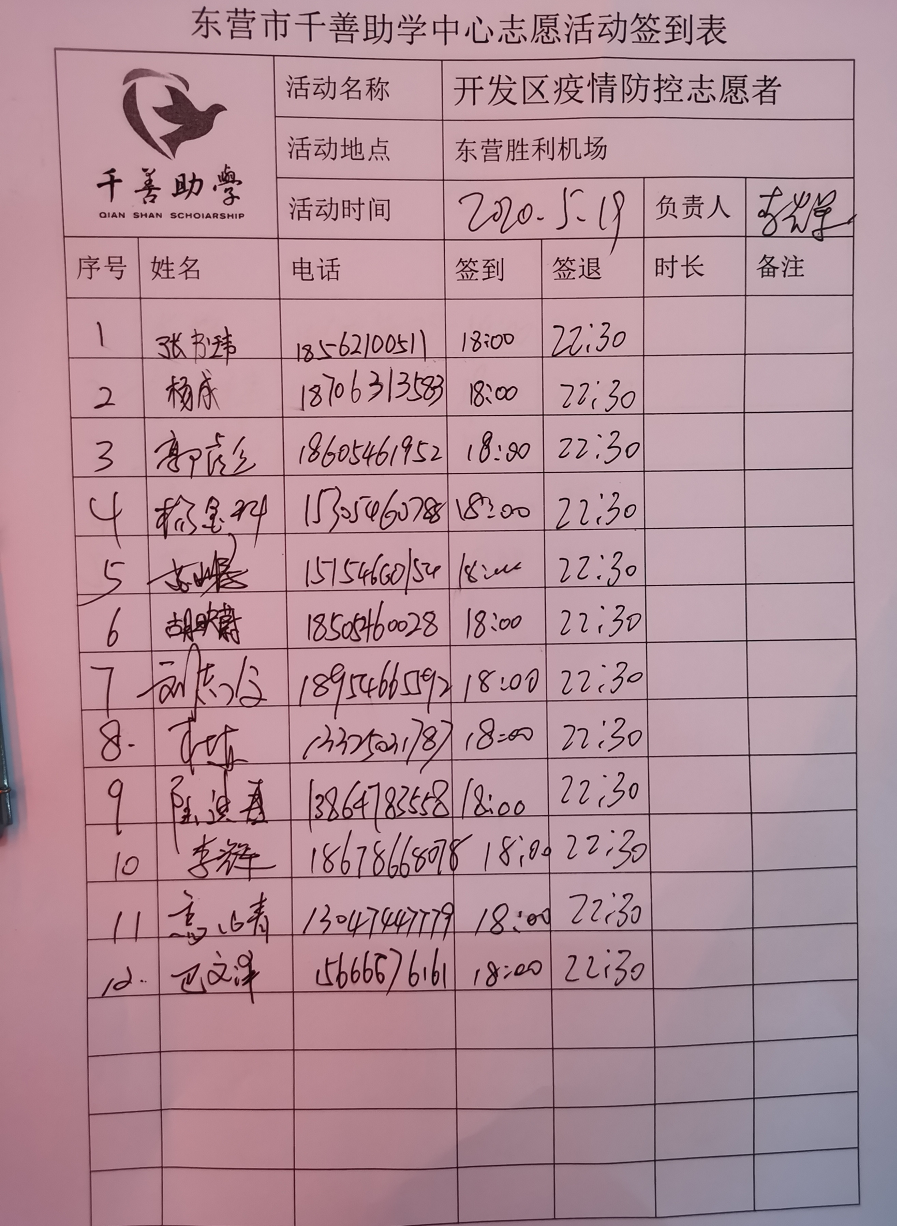 东营市千善助学中心志愿活动签到表
千善助學
QIAN SHAN SCHOlARSHIP
活动名称 开发区疫情防控志愿者
活动地点 东营胜利机场
活动时间 2020.5.19 负责人
序号 姓名 电话 签到 签退 时长 备注
1 张书玮 18562100511 18:00 22:30
2 杨成 18706313583 18:00 22:30
3 18605461952 18:00 22:30
4 15305460788 18:00 22:30
5 15154660154 18:00 22:30
6 胡映霞 18505460028 18:00 22:30
7 18954665592 18:00 22:30
8. 13325031787 18:00 22:30
9 13864783558 18:00 22:30
10 李辉 18678668078 18:00 22:30
11 13047447779 18:00 22:30
12. 巴文泽 15666676161 18:00 22:30